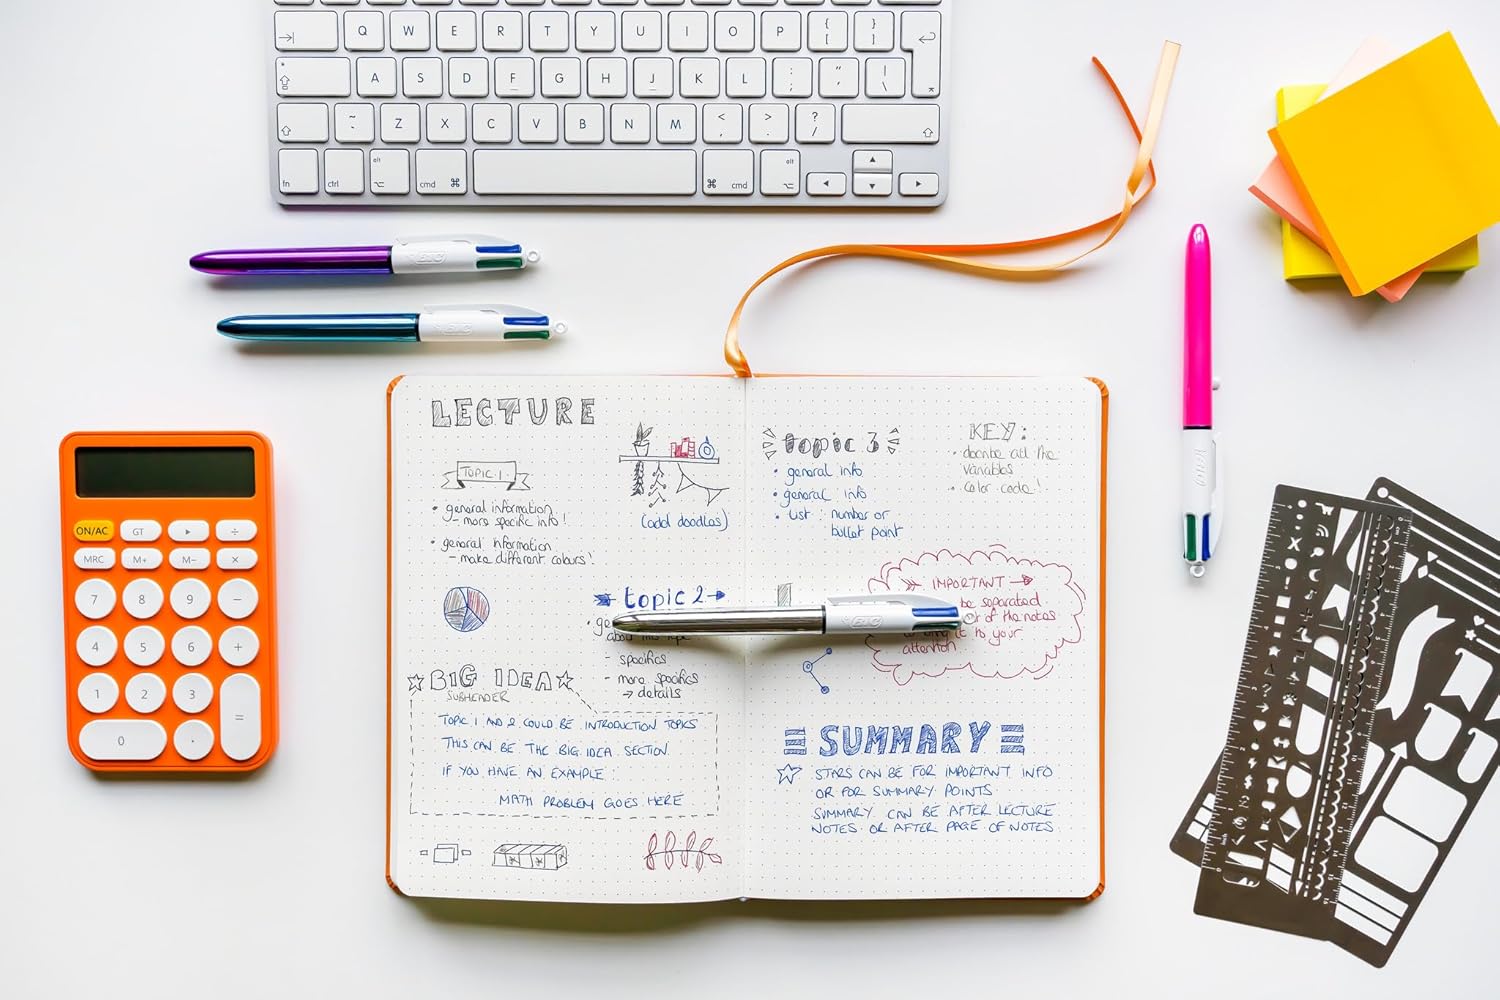 Q W E R T Y U I O P { [ } ]
A S D F G H J K L : ; " ' | \
~ ` Z X C V B N M < , > . ? /
fn ctrl alt cmd cmd alt
BIC
BIC
BIC
ON/AC GT ÷
MRC M+ M− ×
7 8 9 −
4 5 6 +
1 2 3 =
0 .
LECTURE
TOPIC 1
• general information
– more specific info!
• general information
– make different colours!
(add doodles)
topic 2
about this topic
- specifics
- more specifics
→ details
BIG IDEA
SUBHEADER
TOPIC 1 AND 2 COULD BE INTRODUCTION TOPICS
THIS CAN BE THE BIG IDEA SECTION.
IF YOU HAVE AN EXAMPLE:
MATH PROBLEM GOES HERE
topic 3
• general info
• general info
• List: number or
bullet point
KEY:
• describe all the
variables
• color code!
IMPORTANT
be separated
of the notes
it to your
attention
BIC
SUMMARY
STARS CAN BE FOR IMPORTANT INFO
OR FOR SUMMARY POINTS
SUMMARY CAN BE AFTER LECTURE
NOTES OR AFTER PAGE OF NOTES